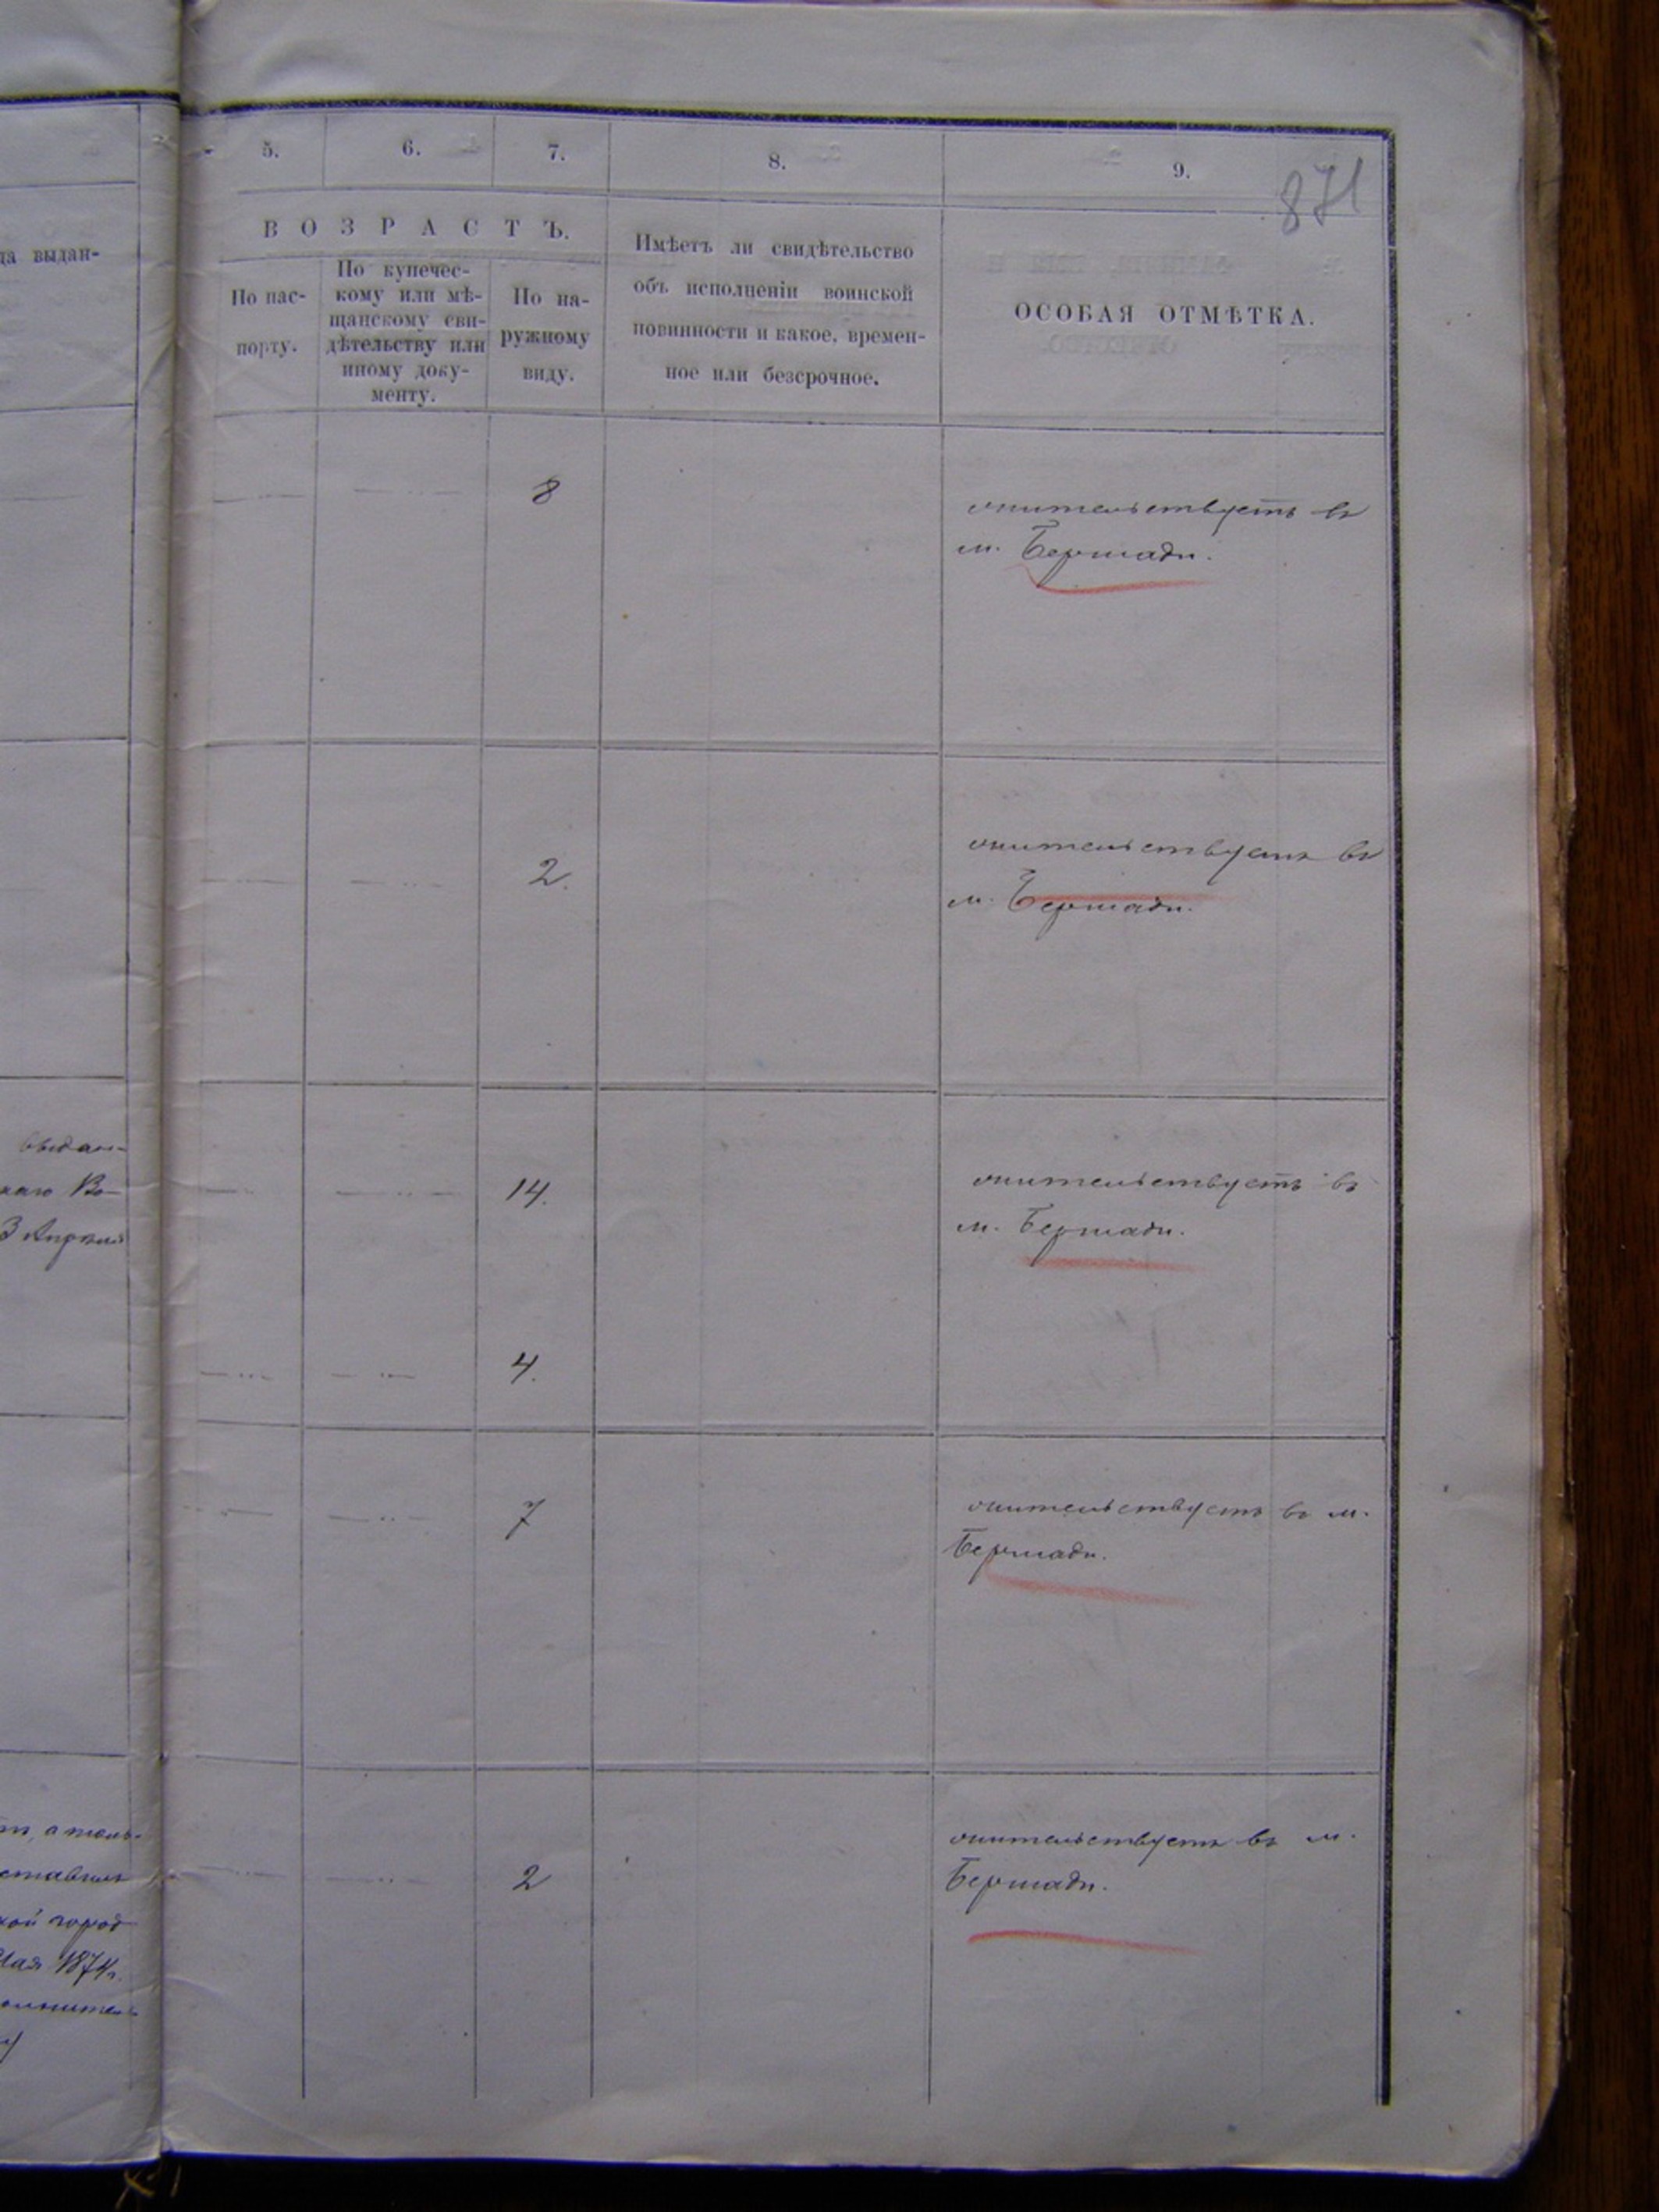 871
5. 6. 7. 8. 9.
да выдан-
ВОЗРАСТЪ.
По пас-
порту.
По купечес-
кому или мѣ-
щанскому сви-
дѣтельству или
иному доку-
менту.
По на-
ружному
виду.
Имѣетъ ли свидѣтельство
объ исполненіи воинской
повинности и какое, времен-
ное или безсрочное.
ОСОБАЯ ОТМѢТКА.
8
жительствуетъ въ
м. Бершади.
2.
жительствуетъ въ
м. Бершади.
выдан-
3 Апрѣля
14.
жительствуетъ въ
м. Бершади.
4.
7
жительствуетъ въ м.
Бершади.
2
жительствуетъ въ м.
Бершади.
город
Мая 1874г.